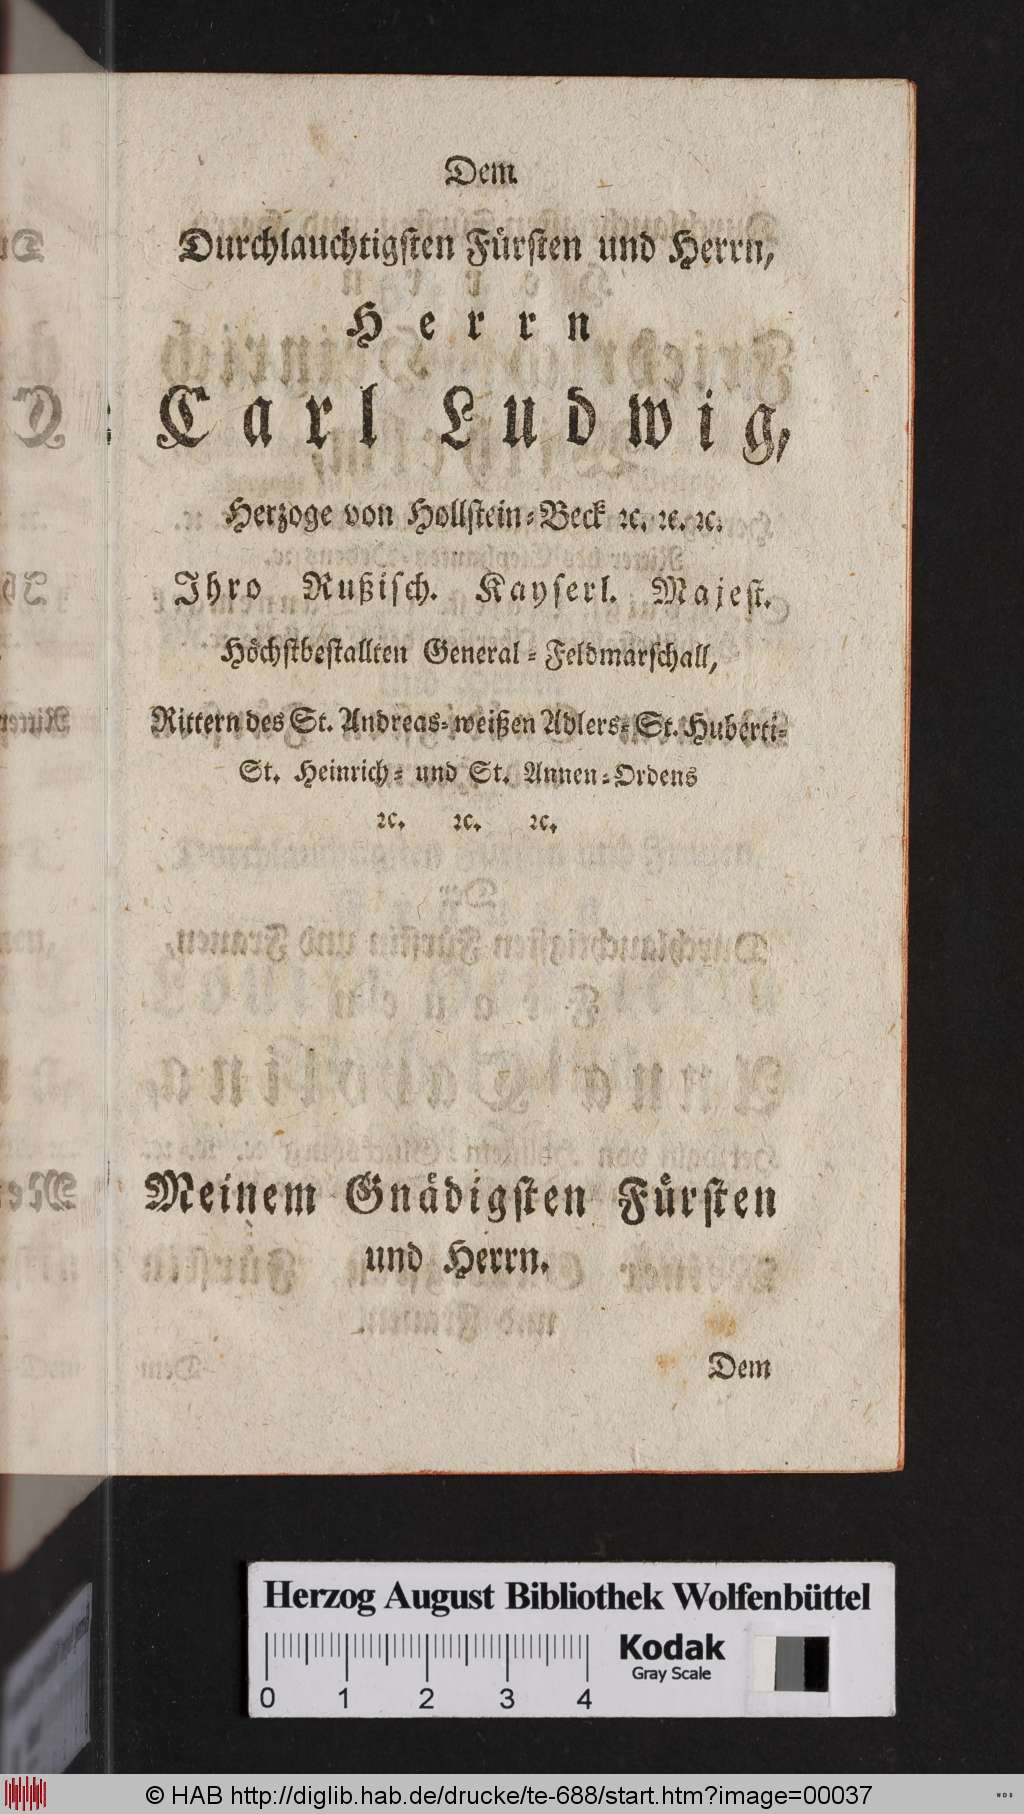 Dem
Durchlauchtigsten Fürsten und Herrn,
Herrn
Carl Ludwig,
Herzoge von Hollstein-Beck ꝛc. ꝛc. ꝛc.
Ihro Rußisch. Kayserl. Majest.
Höchstbestallten General-Feldmarschall,
Rittern des St. Andreas-weißen Adlers-St. Huberti-
St. Heinrich- und St. Annen-Ordens
ꝛc. ꝛc. ꝛc.
Meinem Gnädigsten Fürsten
und Herrn.
Dem
Herzog August Bibliothek Wolfenbüttel
Kodak
Gray Scale
0 1 2 3 4
© HAB http://diglib.hab.de/drucke/te-688/start.htm?image=00037